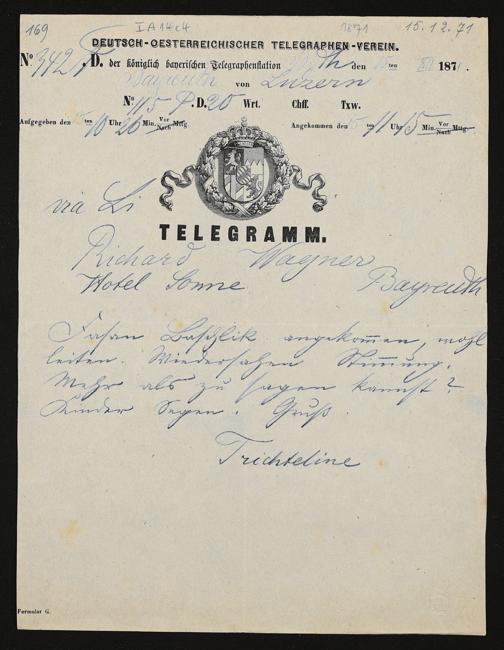 169 I A 14c4 1871 15.12.71
DEUTSCH-OESTERREICHISCHER TELEGRAPHEN-VEREIN.
No 342 D. der königlich bayerischen Telegraphenstation den ten XII 1871.
Bayreuth von Luzern
No 115 P. D. 20 Wrt. Chff. Txw.
Aufgegeben den 15 ten 10 Uhr 20 Min. Vor Nach Mttg. Angekommen den 15 ten 11 Uhr 15 Min. Vor Nach Mttg.
via Li
TELEGRAMM.
Richard Wagner
Hotel Sonne Bayreuth
Fasan Baschlik angekommen, wohl
leiten. Wiedersehen Stimmung.
Mehr als zu sagen kannst?
Kinder Segen. Gruß.
Trichteline
Formular G.